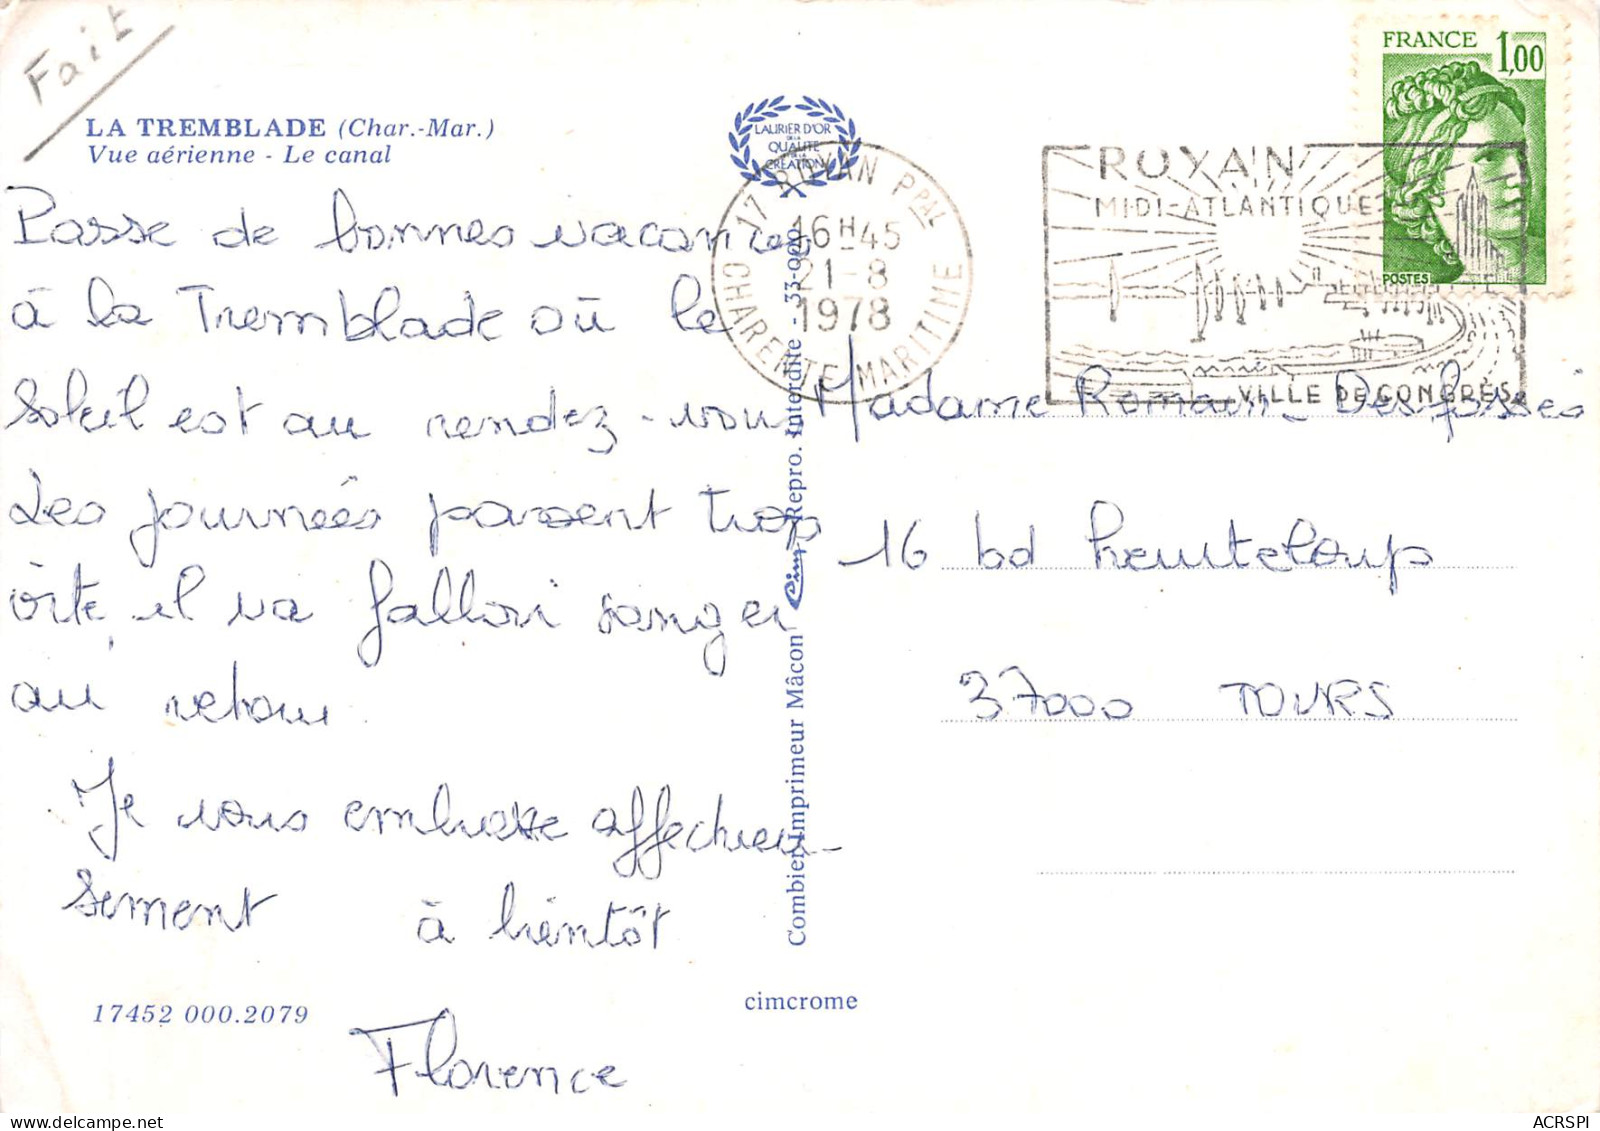 Fait
LA TREMBLADE (Char.-Mar.)
Vue aérienne - Le canal
Passe de bonnes vacances
à la Tremblade où le
soleil est au rendez-vous
Les journées passent trop
vite, il va falloir songer
au retour.
Je vous embrasse affectueu-
sement à bientôt
Florence
17452 000.2079
Combier Imprimeur Mâcon Cim Repro. Interdite - 33-000
cimcrome
LAURIER D'OR
DE LA
QUALITÉ
DE LA
CRÉATION
17 ROYAN PPAL
16H45
21-8
1978
CHARENTE MARITIME
ROYAN
MIDI-ATLANTIQUE
VILLE DE CONGRÈS
FRANCE 1,00
POSTES
Madame Romain-Desfossés
16 bd heurteloup
37000 TOURS
ACRSPI